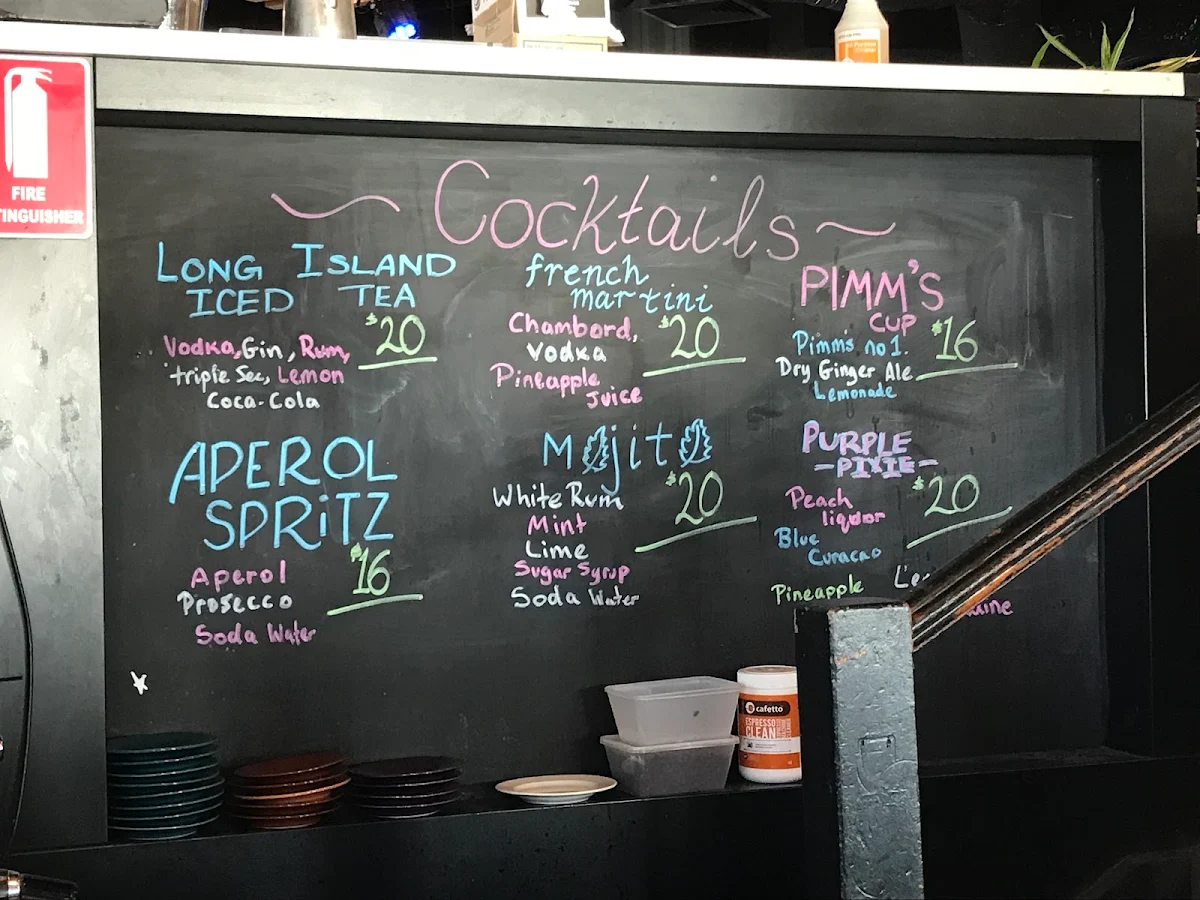 FIRE
TINGUISHER
Cocktails
LONG ISLAND
ICED TEA
$20
Vodka, Gin, Rum,
triple Sec, Lemon
Coca-Cola
french
martini
$20
Chambord,
Vodka
Pineapple
Juice
PIMM'S
CUP
$16
Pimms no 1.
Dry Ginger Ale
Lemonade
APEROL
SPRITZ
$16
Aperol
Prosecco
Soda Water
Mojito
$20
White Rum
Mint
Lime
Sugar Syrup
Soda Water
PURPLE
-PIXIE-
$20
Peach
liquor
Blue
Curacao
Pineapple
cafetto
ESPRESSO
CLEAN